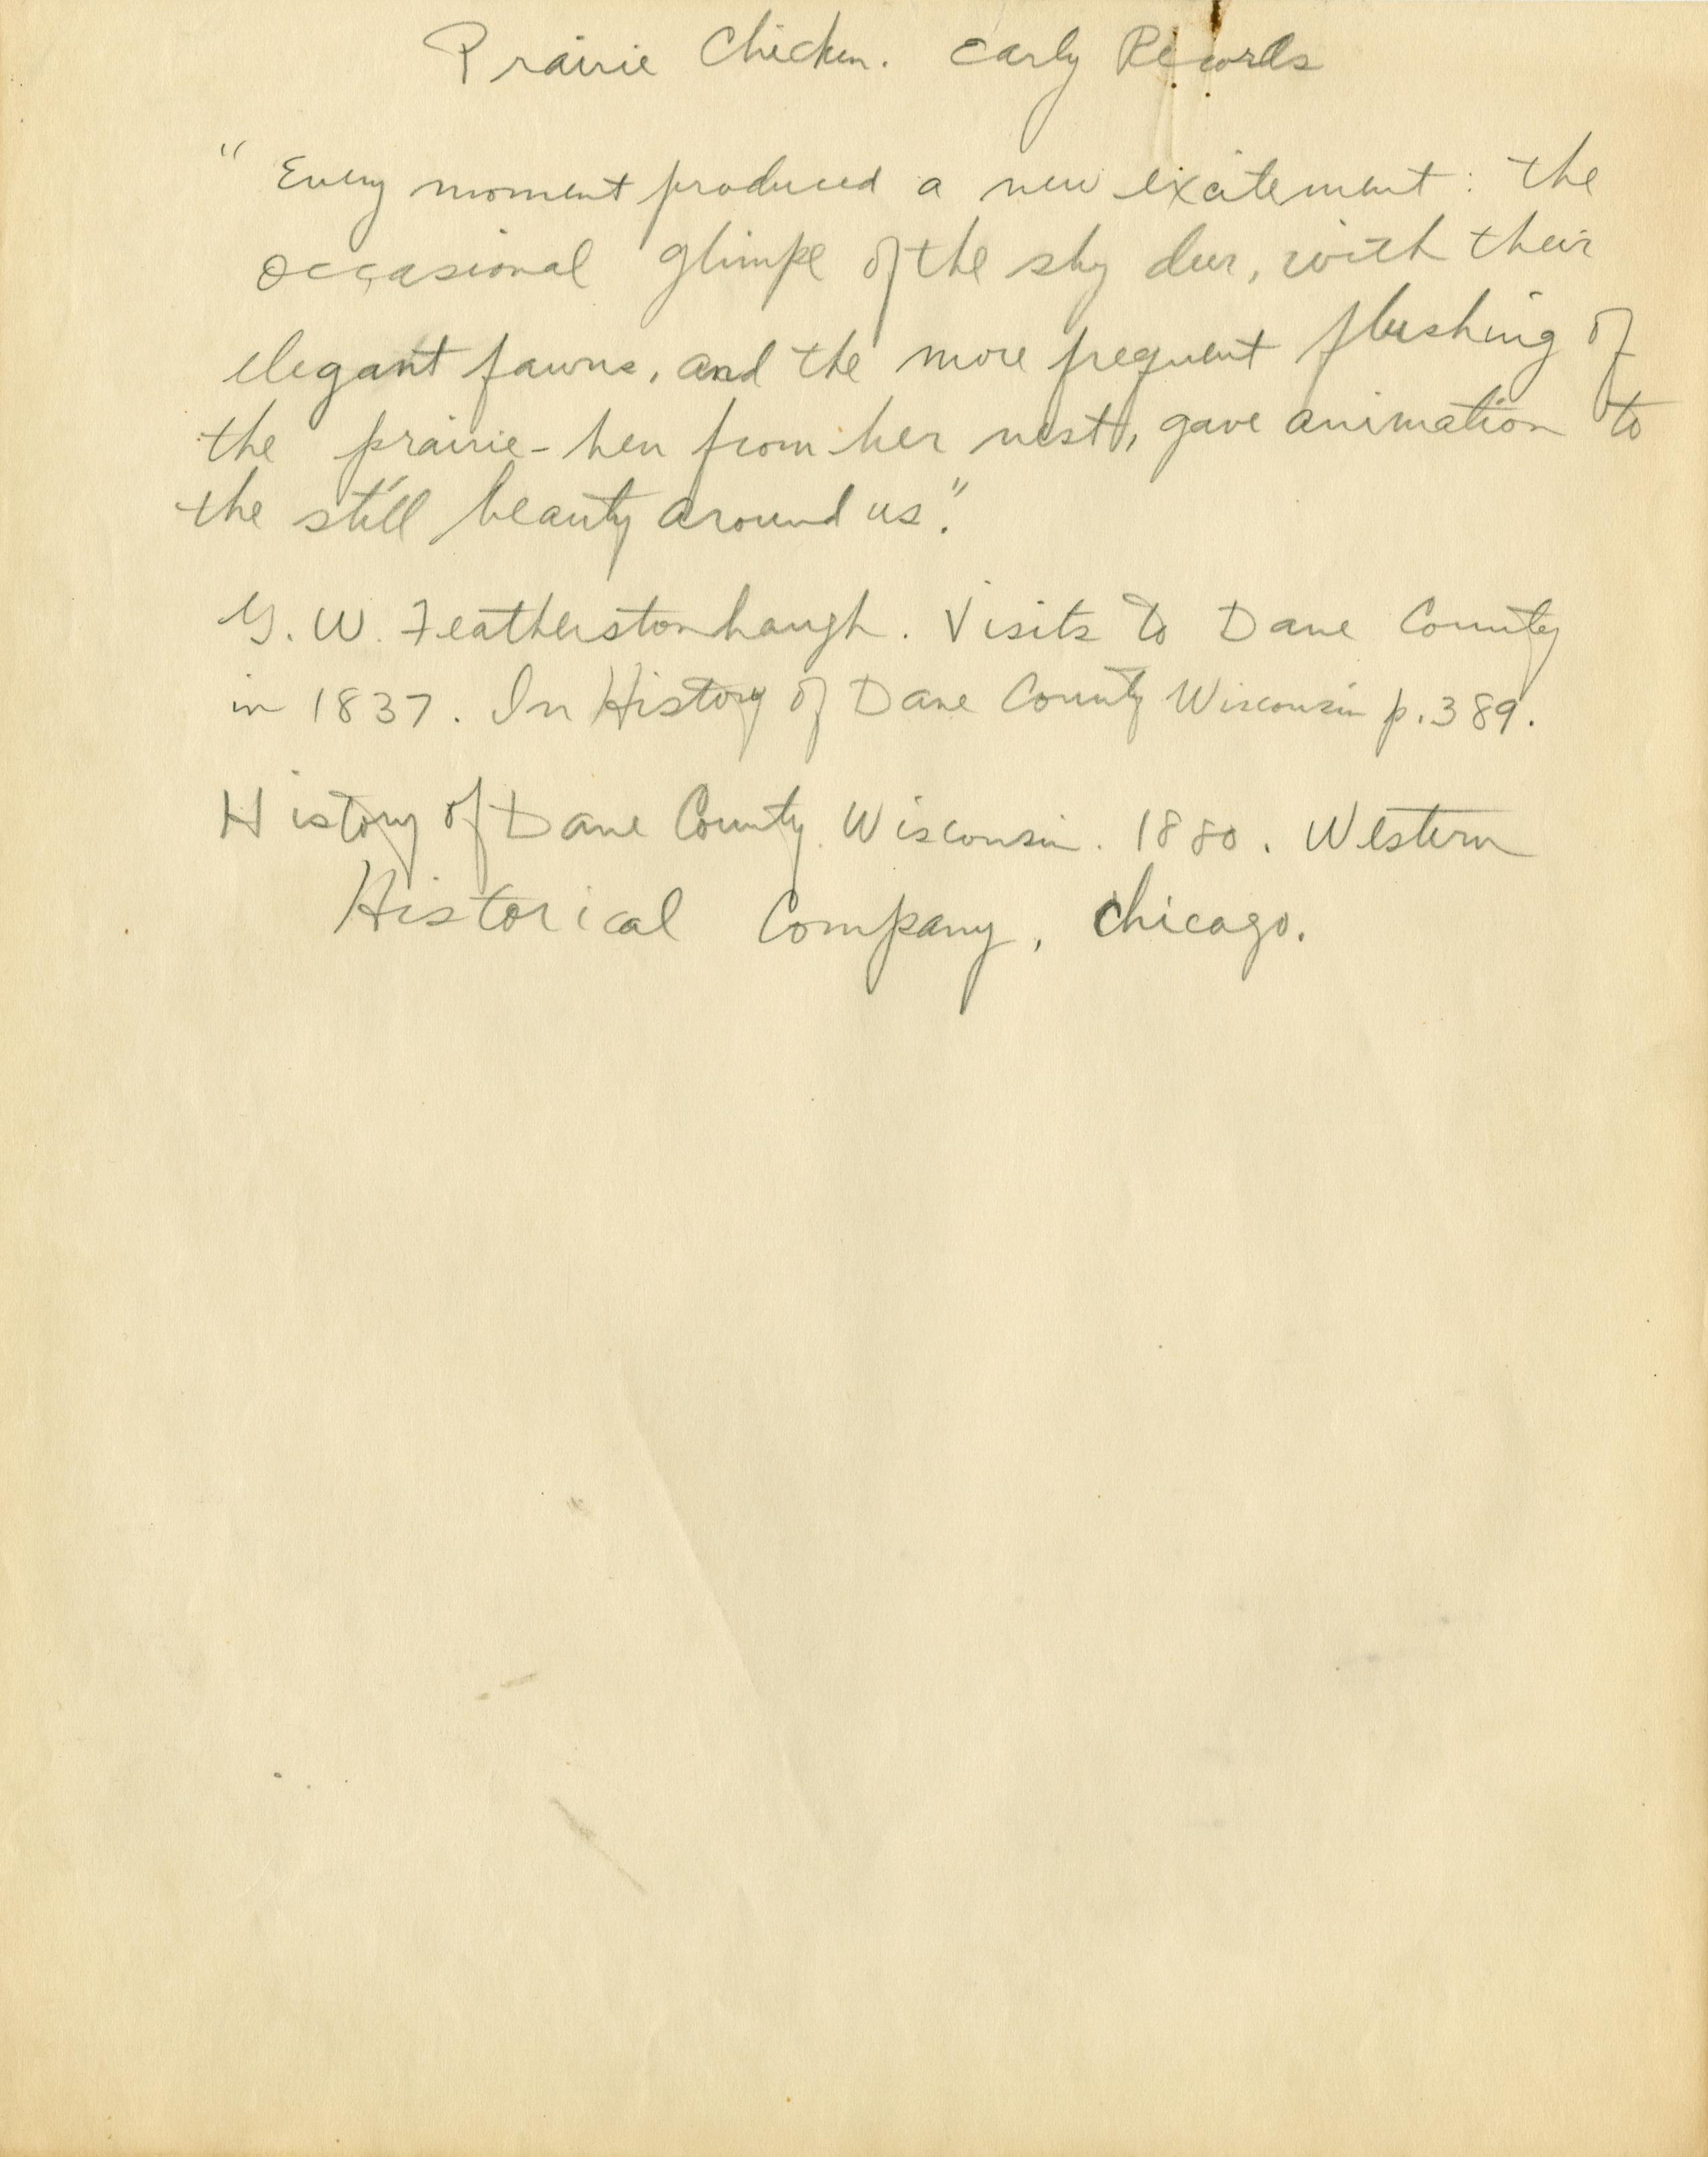 Prairie Chicken. Early Records
" Every moment produced a new excitement: the
occasional glimpse of the shy deer, with their
elegant fawns, and the more frequent flushing of
the prairie-hen from her nest, gave animation to
the still beauty around us."
G. W. Featherstonhaugh. Visits to Dane County
in 1837. In History of Dane County Wisconsin p. 389.
History of Dane County Wisconsin. 1880. Western
Historical Company, Chicago.